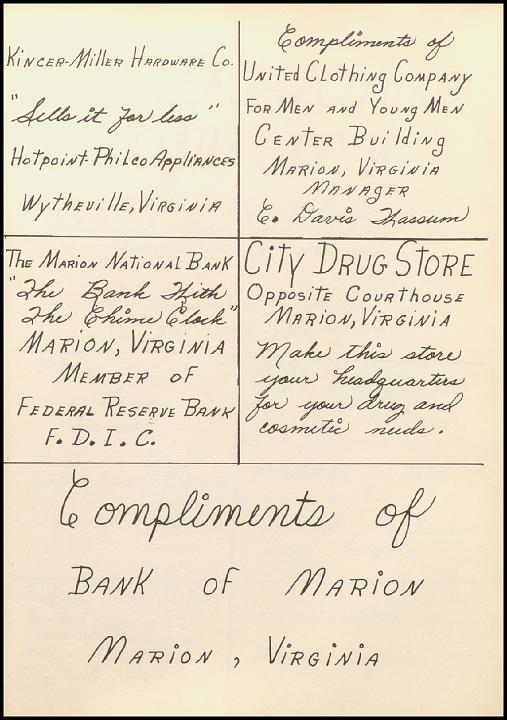 Kincer-Miller Hardware Co.
"Sells it for less"
Hotpoint-Philco Appliances
Wytheville, Virginia
Compliments of
United Clothing Company
For Men and Young Men
Center Building
Marion, Virginia
Manager
E. Davis Thassum
The Marion National Bank
"The Bank With
The Chime Clock"
Marion, Virginia
Member of
Federal Reserve Bank
F. D. I. C.
City Drug Store
Opposite Courthouse
Marion, Virginia
Make this store
your headquarters
for your drug and
cosmetic needs.
Compliments of
Bank of Marion
Marion, Virginia